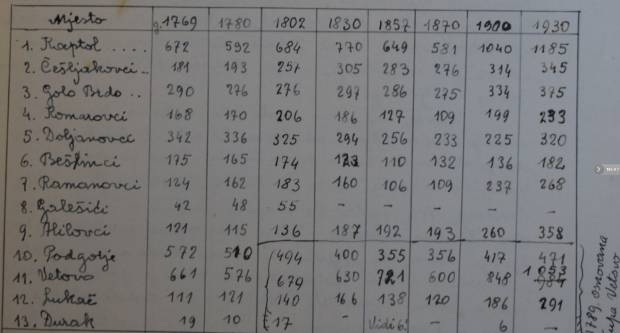 Mjesto g. 1769 1780 1802 1830 1857 1870 1900 1930
1. Kaptol .... 672 592 684 770 649 581 1040 1185
2. Češljakovci .. 181 193 251 305 283 276 314 345
3. Golo Brdo .. 290 276 276 297 286 275 334 375
4. Komarovci 168 170 206 186 127 109 199 233
5. Doljanovci 342 336 325 294 256 233 225 320
6. Bešlinci 175 165 174 123 110 132 136 182
7. Ramanovci 124 162 183 160 106 109 237 268
8. Galešići 42 48 55 - - - - -
9. Alilovci 121 115 136 187 192 193 260 358
10. Podgorje 572 510 494 400 355 356 417 471
11. Vetovo 661 576 679 630 721 600 848 1053
12. Lukač 111 121 140 166 138 120 186 291
13. Durak 19 10 17 Vidi 6! - 6 -
1789. osnovana
župa Vetovo